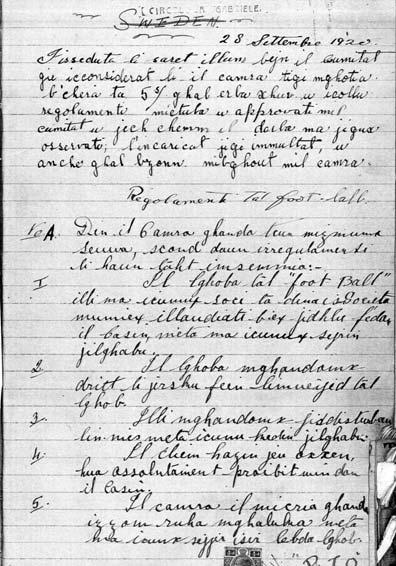 CIRCOLO S. GABRIELE.
SWEDEN.
28 Settembre 1920.
Fisseduta li saret illum bejn il cumitat
gie icconsiderat li il camra tigi mghotia
b'chera ta 5s/ ghal erba xhur u icollu
regolamenti mictuba u approvati mil
cumitat u jech chemm il darba ma jigux
osservati, l'incaricat jigi immultat, u
anche ghal bzonn mibghout mil camra.
Regolamenti tal foot-ball.
No A. Den il Camra ghanda tcun mizmuma
sewwa, scond dawn irregulamenti
li hawn taht imsemmia:-
I Il lghoba tal "foot Ball"
illi ma icunux soci ta dina is Societa
mumiex illaudiati biex jidhlu f'dan
il Casin, meta ma icunux sejrin
jilghabu.
2. Il lghoba mghandomx
dritt li jirsku fejn limwejjed tal
lghob.
3. Illi mghandomx jiddisturbaw
lin-nies meta icunu hedin jilghabu.
4. Il cliem hazin jew oxxen,
hua assolutament proibit min dan
il Casin.
5. Il camra il micria ghand
izzom ruha mghaluka meta
ma icunx sejjer isir labda lghob.